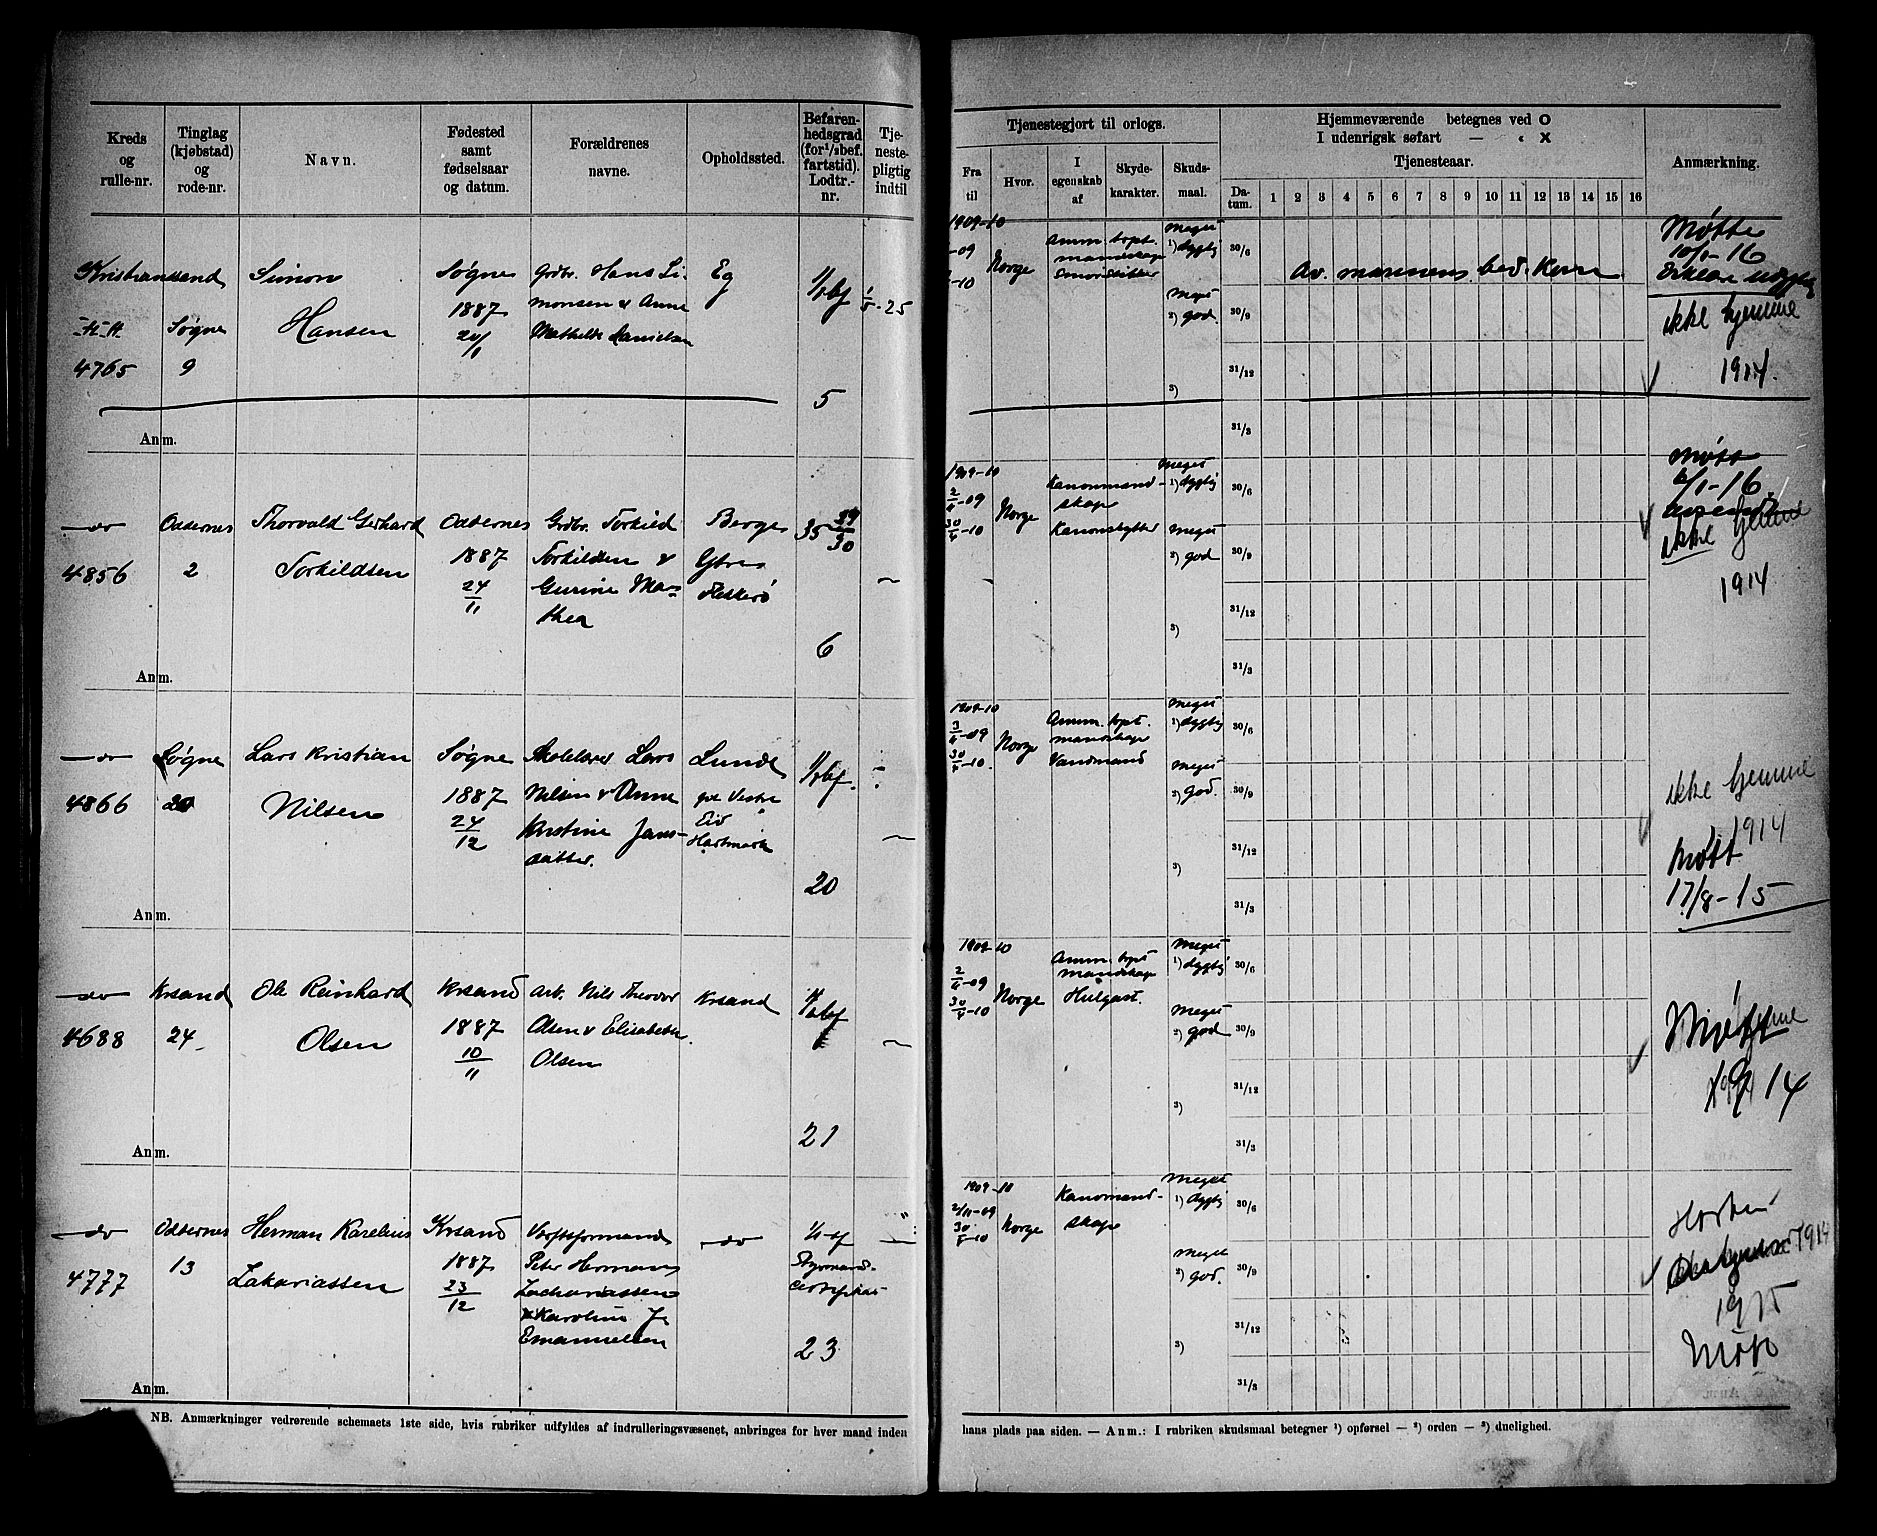 Kreds
og
rulle-nr.
Tinglag
(kjøbstad)
og
rode-nr.
Navn.
Fødested
samt
fødselsaar
og datum.
Forældrenes
navne.
Opholdssted.
Befaren-
hedsgrad
(for ¹/₂ bef.
fartstid).
Lodtr.-
nr.
Tje-
neste-
pligtig
indtil
Kristianssand
4765
Søgne
9
Simon
Hansen
Søgne
1887
Grdbr. Hans Si-
monsen & Anne
Mathilde Danielsen
Eg
1/1 bf
5
25
Anm.
do
4856
Oddernes
2
Thorvald Gerhard
Torkildsen
Oddernes
1887
24
11
Grdbr. Torkild
Torkildsen &
Gurine Ma-
thea
Berge
Ytre
Flekkerø
35
30
6
Anm.
do
4866
Søgne
Lars Kristian
Nilsen
Søgne
1887
24
12
Skolelærer Lars
Nilsen & Anne
Kristine Jans-
datter.
Lunde
Eid
Hartmark
1/1 bf.
20
Anm.
do
4688
Krsand
24
Ole Reinhard
Olsen
Krsand
1887
10
11
Arb. Nils Theodor
Olsen & Elisabeth
Olsen
Krsand
21
Anm.
do
4777
Oddernes
13
Herman Karelius
Zakariassen
Krsand
1887
23
12
Værftsformand
Peter Herman
Zachariassen
& Karoline J.
Emanuelsen
do
Styrmands-
23
Anm.
NB. Anmærkninger vedrørende schemaets 1ste side, hvis rubriker udfyldes af indrulleringsvæsenet, anbringes for hver mand inden
Tjenestegjort til orlogs.
Hjemmeværende betegnes ved O
I udenrigsk søfart — « X
Fra
til
Hvor.
I
egenskab
af
Skyde-
karakter.
Skuds-
maal.
Tjenesteaar.
Da-
tum.
1 2 3 4 5 6 7 8 9 10 11 12 13 14 15 16
Anmærkning.
1909-10
-09
-10
Norge
Amm. opt.
mandskap
Meget
¹) dygtig
Meget
²) god.
³)
30/6
30/9
31/12
31/3
Av. marinens bed.
Møtte
10/1-16
ikke hjemme
1914.
1909-10
2/11-09
30/4-10
Norge
Kanonmand-
skap
Kanonskytter
Meget
¹) dygtig
Meget
²) god
³)
30/6
30/9
31/12
31/3
Møtt
ikke hjemme
1914
1909-10
-09
30/4-10.
Norge
Amm. opt.
mandskap
Vandmand
Meget
¹) dygtig
Meget
²) god.
³)
30/6
30/9
31/12
31/3
ikke hjemme
1914
Møtt
17/8-15
1909-10
-09
30/4-10
Norge
Amm. opt
mandskap
Meget
¹) dygtig
Meget
²) god
³)
30/6
30/9
31/12
31/3
Møtt
14
1909-10
2/11-09
30
-10
Norge
Kanonmand-
skap
Meget
¹) dygtig
Meget
²) god.
³)
30/6
30/9
31/12
31/3
Horten
1914
1915
Møtt
hans plads paa siden. — Anm.: I rubriken skudsmaal betegner ¹) opførsel — ²) orden — ³) duelighed.